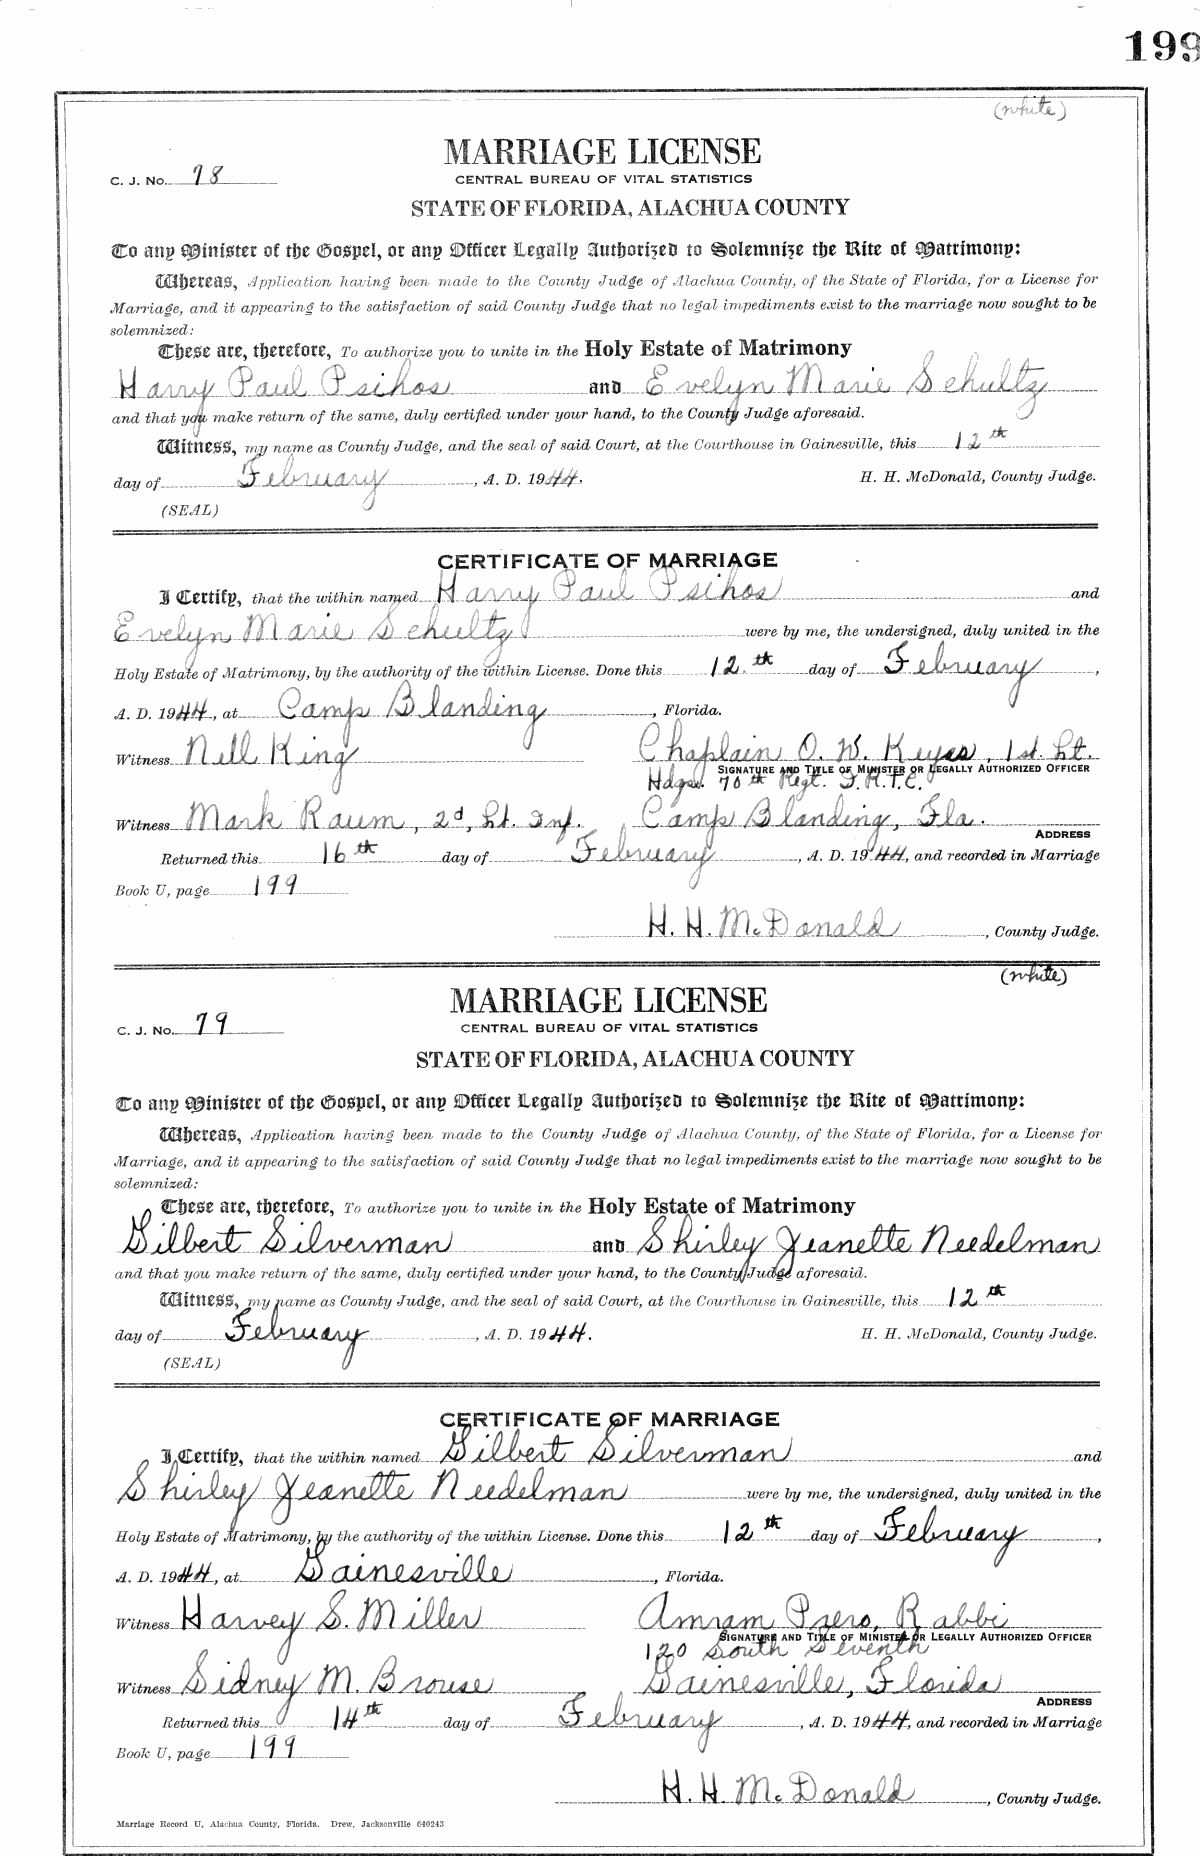 199
(white)
MARRIAGE LICENSE
C. J. No. 78
CENTRAL BUREAU OF VITAL STATISTICS
STATE OF FLORIDA, ALACHUA COUNTY
To any Minister of the Gospel, or any Officer Legally Authorized to Solemnize the Rite of Matrimony:
Whereas, Application having been made to the County Judge of Alachua County, of the State of Florida, for a License for
Marriage, and it appearing to the satisfaction of said County Judge that no legal impediments exist to the marriage now sought to be
solemnized:
These are, therefore, To authorize you to unite in the Holy Estate of Matrimony
Harry Paul Psihos and Evelyn Marie Schultz
and that you make return of the same, duly certified under your hand, to the County Judge aforesaid.
Witness, my name as County Judge, and the seal of said Court, at the Courthouse in Gainesville, this 12th
day of February, A. D. 1944. H. H. McDonald, County Judge.
(SEAL)
CERTIFICATE OF MARRIAGE
I Certify, that the within named Harry Paul Psihos and
Evelyn Marie Schultz were by me, the undersigned, duly united in the
Holy Estate of Matrimony, by the authority of the within License. Done this 12th day of February,
A. D. 1944, at Camp Blanding, Florida.
Witness Nell King Chaplain O. W. Keyes, 1st. Lt.
SIGNATURE AND TITLE OF MINISTER OR LEGALLY AUTHORIZED OFFICER
Hdqs. 70th Regt. I.R.T.C.
Witness Mark Raum, 2d, Lt. Inf. Camp Blanding, Fla.
ADDRESS
Returned this 16th day of February, A. D. 1944, and recorded in Marriage
Book U, page 199
H. H. McDonald, County Judge.
(white)
MARRIAGE LICENSE
C. J. No. 79
CENTRAL BUREAU OF VITAL STATISTICS
STATE OF FLORIDA, ALACHUA COUNTY
To any Minister of the Gospel, or any Officer Legally Authorized to Solemnize the Rite of Matrimony:
Whereas, Application having been made to the County Judge of Alachua County, of the State of Florida, for a License for
Marriage, and it appearing to the satisfaction of said County Judge that no legal impediments exist to the marriage now sought to be
solemnized:
These are, therefore, To authorize you to unite in the Holy Estate of Matrimony
Gilbert Silverman and Shirley Jeanette Needelman
and that you make return of the same, duly certified under your hand, to the County Judge aforesaid.
Witness, my name as County Judge, and the seal of said Court, at the Courthouse in Gainesville, this 12th
day of February, A. D. 1944. H. H. McDonald, County Judge.
(SEAL)
CERTIFICATE OF MARRIAGE
I Certify, that the within named Gilbert Silverman and
Shirley Jeanette Needelman were by me, the undersigned, duly united in the
Holy Estate of Matrimony, by the authority of the within License. Done this 12th day of February,
A. D. 1944, at Gainesville, Florida.
Witness Harvey S. Miller Amram Prero, Rabbi
SIGNATURE AND TITLE OF MINISTER OR LEGALLY AUTHORIZED OFFICER
120 South Seventh
Witness Sidney M. Brouse Gainesville, Florida
ADDRESS
Returned this 14th day of February, A. D. 1944, and recorded in Marriage
Book U, page 199
H. H. McDonald, County Judge.
Marriage Record U, Alachua County, Florida. Drew, Jacksonville 640243